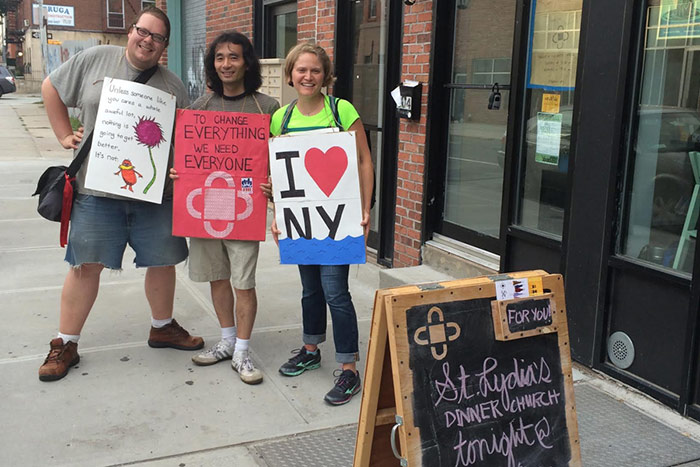 RUGA
Unless someone like
you cares a whole
awful lot,
nothing is
going to get
better.
It's not.
TO CHANGE
EVERYTHING
WE NEED
EVERYONE
I
NY
14
FOR YOU!
St. Lydia's
DINNER CHURCH
tonight@